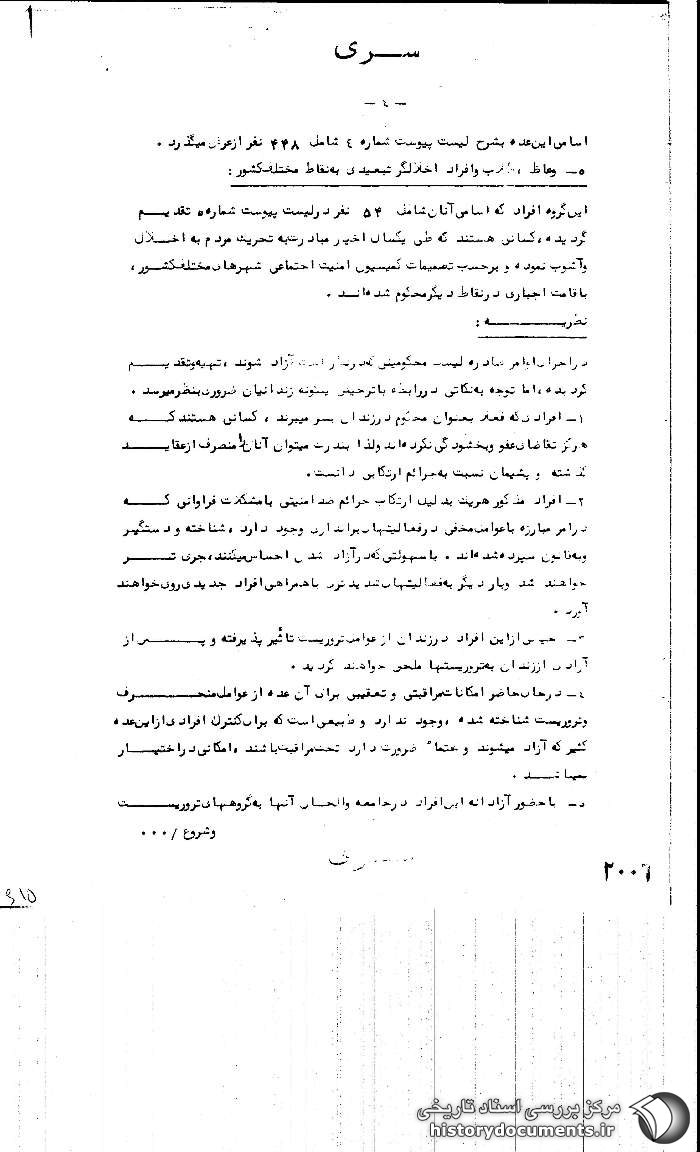 سری
- ٤ -
اسامی این عده بشرح لیست پیوست شماره ٤ شامل ۴۴۸ نفر از عرض میگذرد .
٥- وعاظ ، طلاب وافراد اخلالگر تبعیدی به نقاط مختلف کشور :
این گروه افراد که اسامی آنان شامل ۵۴ نفر در لیست پیوست شماره ٥ تقدیم
گردیده ، کسانی هستند که طی یکسال اخیر مبادرت به تحریک مردم به اخلال
وآشوب نموده و برحسب تصمیمات کمیسیون امنیت اجتماعی شهرهای مختلف کشور ،
باقامت اجباری در نقاط دیگر محکوم شده اند .
نظریه :
در اجرای اوامر صادره لیست محکومینی که در نظر است آزاد شوند ، تهیه و تقدیم
گردیده ، اما توجه به نکاتی در رابطه با ترخیص اینگونه زندانیان ضروری بنظر میرسد .
١- افرادی که فعلا بعنوان محکوم در زندان بسر میبرند ، کسانی هستند که
هرگز تقاضای عفو وبخشودگی نکرده اند ولذا بندرت میتوان آنان را منصرف از عقاید
گذشته و پشیمان نسبت به جرائم ارتکابی دانست .
٢- افراد مذکور هریک بدلیل ارتکاب جرائم ضد امنیتی با مشکلات فراوانی که
در امر مبارزه با عوامل مخفی در فعالیتهای براندازی وجود دارد ، شناخته و دستگیر
و به قانون سپرده شده اند . با سهولتی که در آزاد شدن احساس میکنند ، جری تر
خواهند شد وبار دیگر به فعالیتهای شدیدتری با همراهی افراد جدیدی روی خواهند
آورد .
٣- خیلی از این افراد در زندان از عوامل تروریست تأثیر پذیرفته و پس از
آزادی از زندان به تروریستها ملحق خواهند گردید .
٤- در حال حاضر امکانات مراقبتی و تعقیبی برای آن عده از عوامل منحرف
وتروریست شناخته شده ، وجود ندارد و طبیعی است که برای کنترل افرادی از این عده
کثیر که آزاد میشوند و حتما ضرورت دارد تحت مراقبت باشند ، امکانی در اختیار
نمیباشد .
٥- با حضور آزادانه این افراد در جامعه والحاق آنها به گروههای تروریست
وشروع / ۰۰۰
سری
۲۰۰۶
۶۱۵
مرکز بررسی اسناد تاریخی
historydocuments.ir